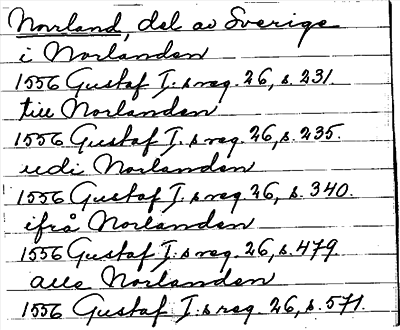 Norrland, del av Sverige
i Norlanden
1556 Gustaf I:s reg. 26, s. 231.
till Norlanden
1556 Gustaf I:s reg. 26, s. 235.
udi Norlanden
1556 Gustaf I:s reg. 26, s. 340.
ifrå Norlanden
1556 Gustaf I:s reg. 26, s. 479.
alle Norlanden
1556 Gustaf I:s reg. 26, s. 571.